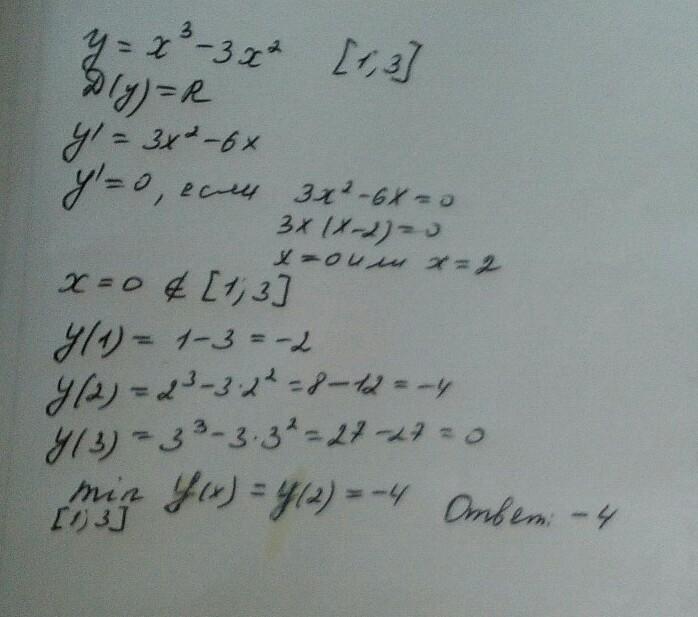 y = x³ - 3x² [1; 3]
D(y) = R
y' = 3x² - 6x
y' = 0, если 3x² - 6x = 0
3x(x-2) = 0
x = 0 или x = 2
x = 0 ∉ [1; 3]
y(1) = 1 - 3 = -2
y(2) = 2³ - 3·2² = 8 - 12 = -4
y(3) = 3³ - 3·3² = 27 - 27 = 0
min y(x) = y(2) = -4 Ответ: -4
[1; 3]